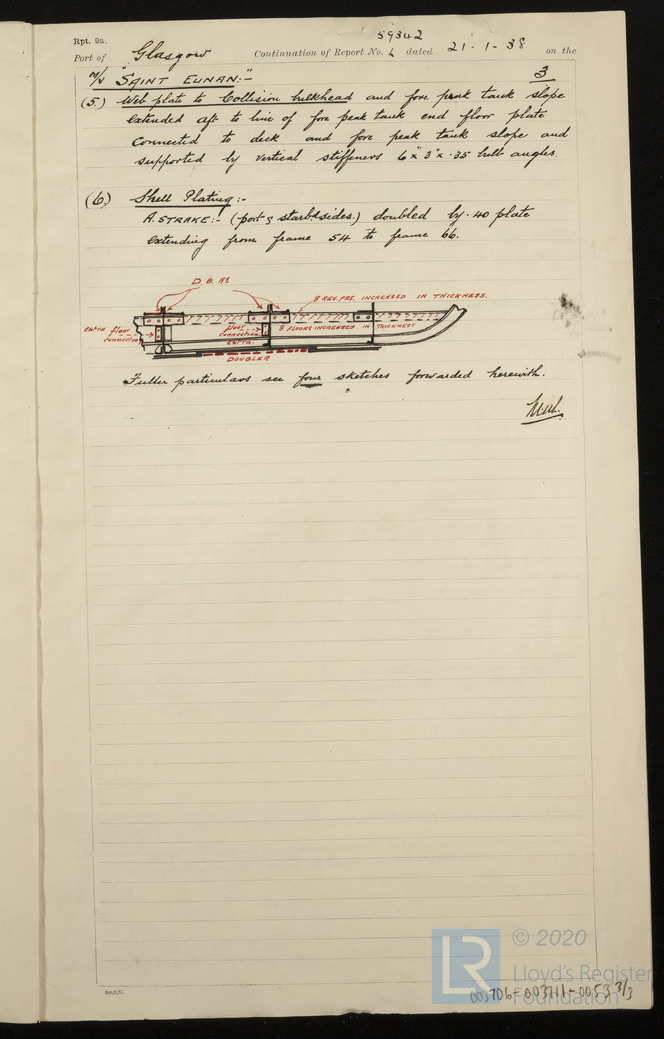 Rpt. 9a.
Port of Glasgow Continuation of Report No. 59342 dated 21-1-38 on the
M/V "SAINT EUNAN:-" 3
(5.) Web plate to Collision bulkhead and fore peak tank slope
extended aft to line of fore peak tank end floor plate
connected to deck and fore peak tank slope and
supported by vertical stiffeners 6" x 3" x .35 bulb angles.
(6.) Shell Plating:-
A. STRAKE:- (port & starbd sides.) doubled by .40 plate
extending from frame 54 to frame 66.
D.B. AS
8 REV. FRS. INCREASED IN THICKNESS.
extra floor connection
floor connection extra.
8 FLOORS INCREASED IN THICKNESS
DOUBLER
Fuller particulars see four sketches forwarded herewith.
© 2020
LR
Lloyd's Register
Foundation
003706-003711-0053 3/3